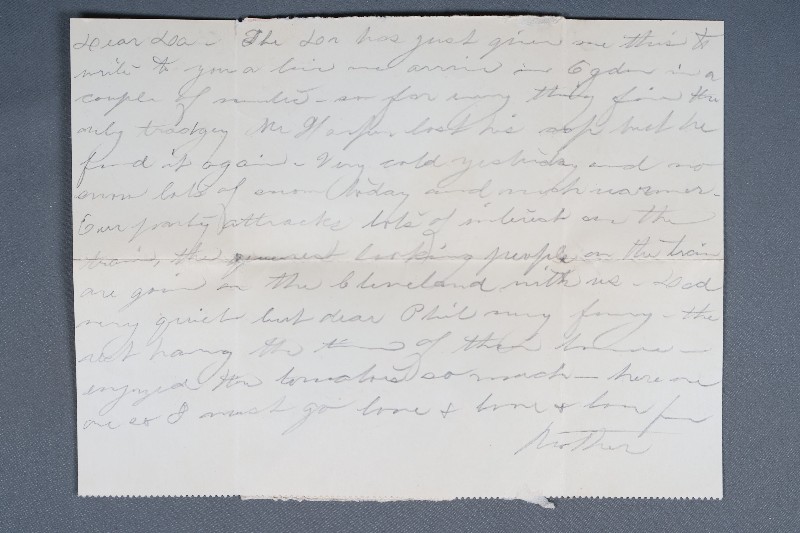 Dear Da - The Dor has just given me this to
write to you a line we arrive in Ogden in a
couple of minutes - so far every thing fine the
only tradgey Mr Harper lost his  but he
found it again - Very cold yesterday and no
snow lots of snow today and much warmer -
Our party attracks lots of interest on the
train, the queerest looking people on the train
are goin on the Cleveland with us - Dad
very quiet but dear Phil very funny - the
rest having the time of their lives -
enjoyed the  so much - here we
are so I must go love & love & love from
Mother